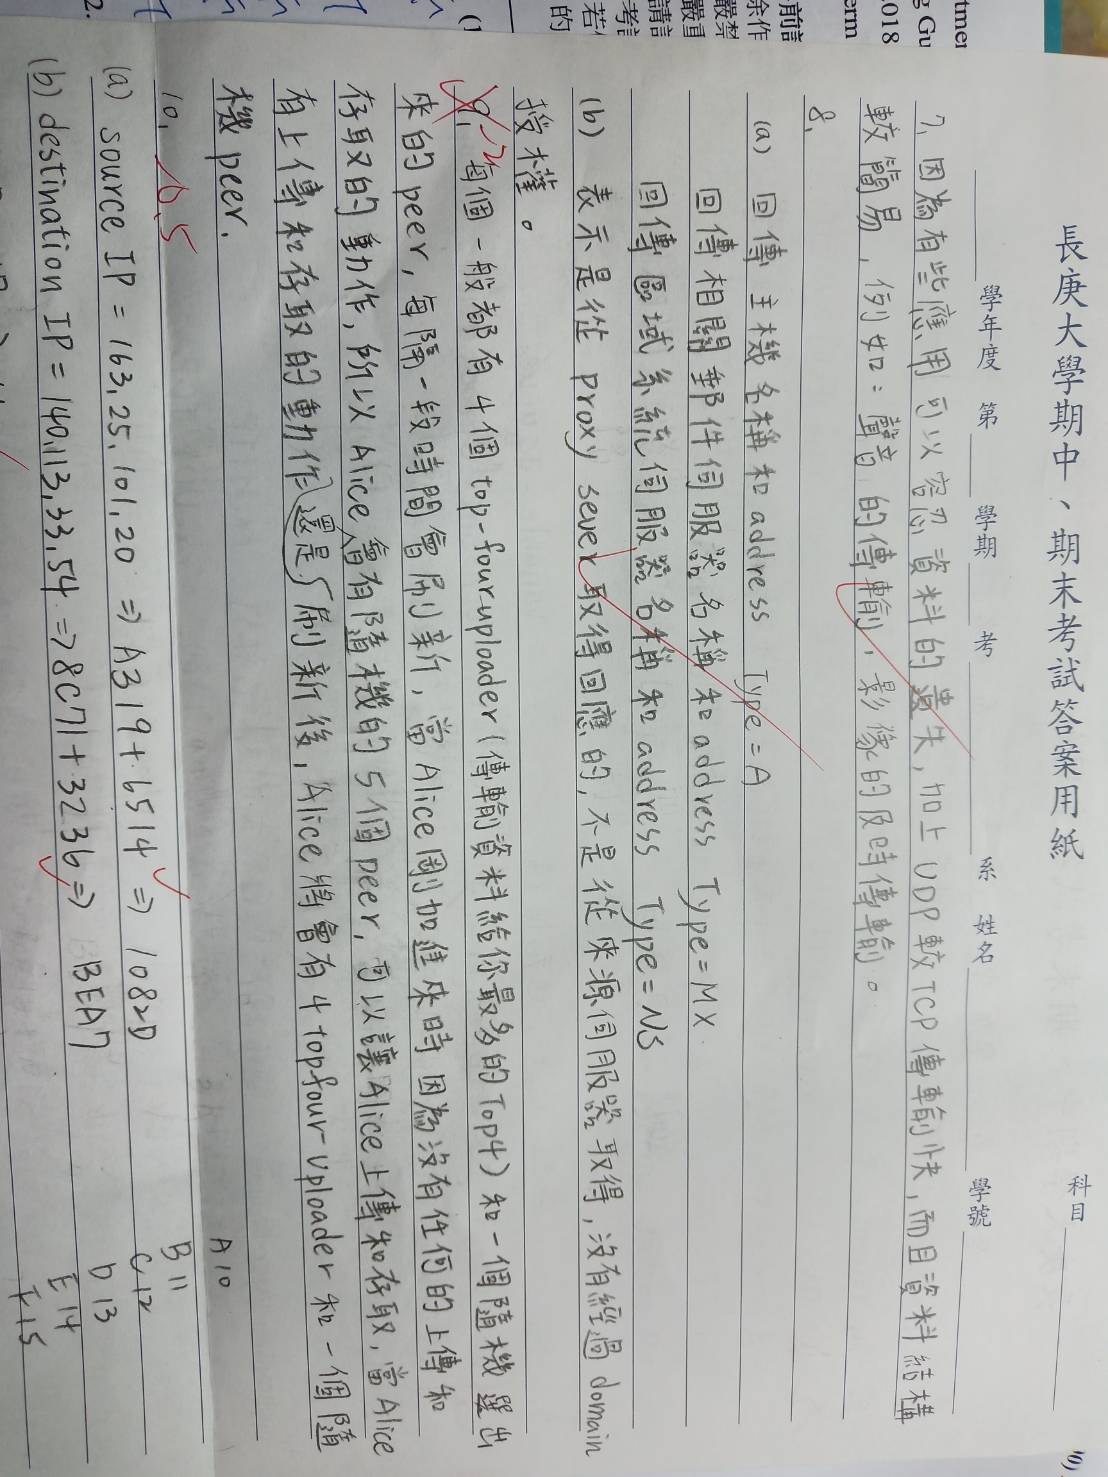 長庚大學期中、期末考試答案用紙
科目
學年度 第 學期 考 系 姓名 學號
7. 因為有些應用可以容忍資料的遺失,加上UDP較TCP傳輸快,而且資料結構
較簡易,例如:聲音的傳輸,影像的及時傳輸。
8.
(a) 回傳主機名稱和address Type=A
回傳相關郵件伺服器名稱和address Type=MX
回傳區域系統伺服器名稱和address Type=NS
(b) 表示是從proxy sever取得回應的,不是從來源伺服器取得,沒有經過domain
授權。
9. 每個一般都有4個top-four uploader(傳輸資料給你最多的Top4)和一個隨機選出
來的peer,每隔一段時間會刷新,當Alice剛加進來時因為沒有任何的上傳和
存取的動作,所以Alice會有隨機的5個peer,可以讓Alice上傳和存取,當Alice
有上傳和存取的動作還是刷新後,Alice將會有4 topfour-uploader和一個隨
機peer.
10. -0.5
(a) source IP = 163.25.101.20 => A319+6514 => 1082D
(b) destination IP = 140.113.33.54 => 8C71+3236 => BEA7
A 10
B 11
C 12
D 13
E 14
F 15